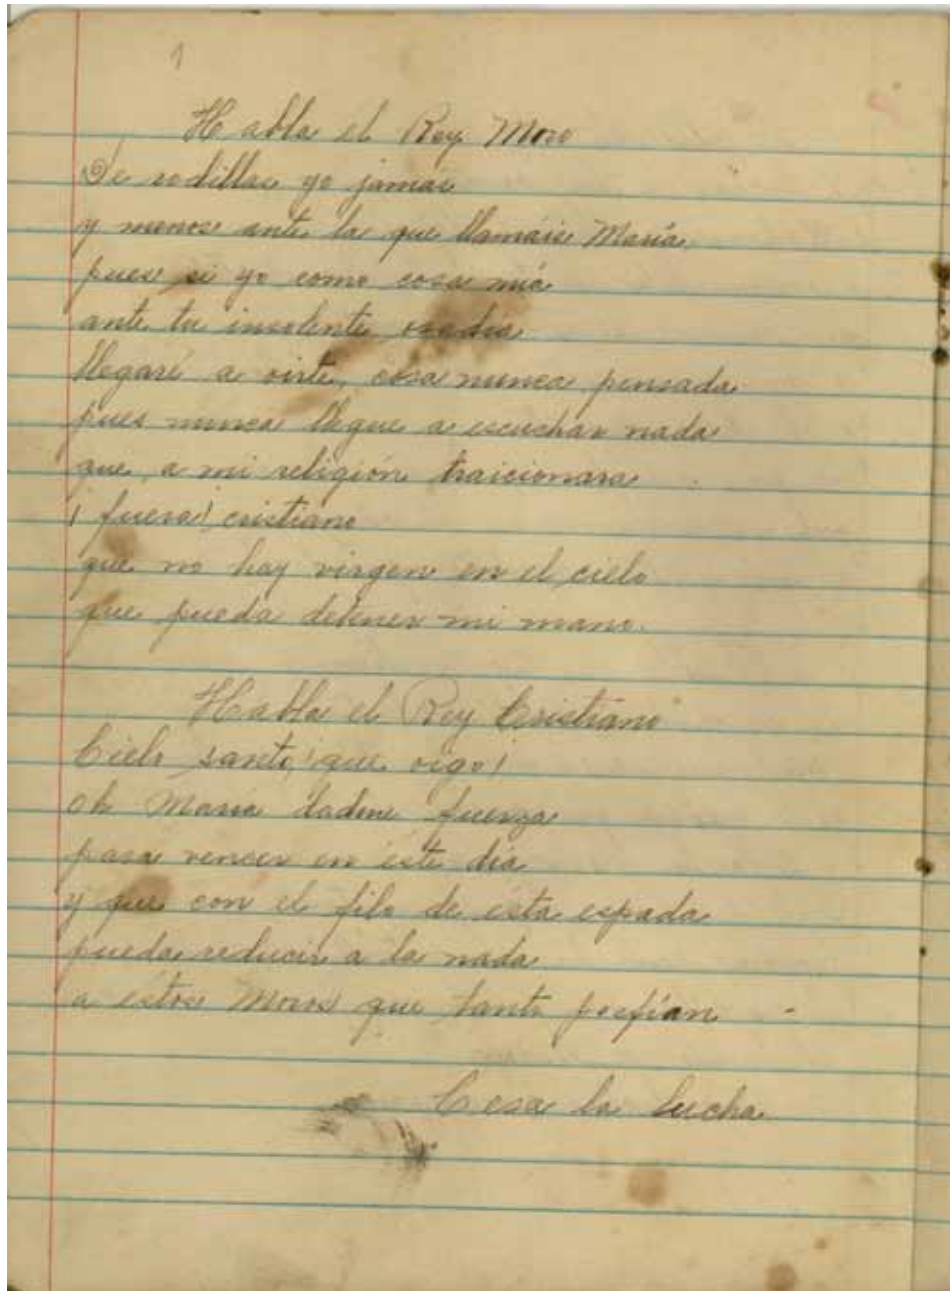 1
Habla el Rey Moro
De rodillas yo jamas
y menos ante la que llamáis María,
pues si yo como cosa mía
ante tu insolente osadía
llegaré a oirte, cosa nunca pensada
pues nunca llegue a escuchar nada
que, a mi religión traicionara
¡fuera! cristiano
que no hay virgen en el cielo
que pueda detener mi mano.
Habla el Rey Cristiano
Cielo santo, ¡que oigo!
oh María dadme fuerza
para vencer en este día
y que con el filo de esta espada
pueda reducir a la nada
a éstos Moros que tanto porfían
Cesa la lucha